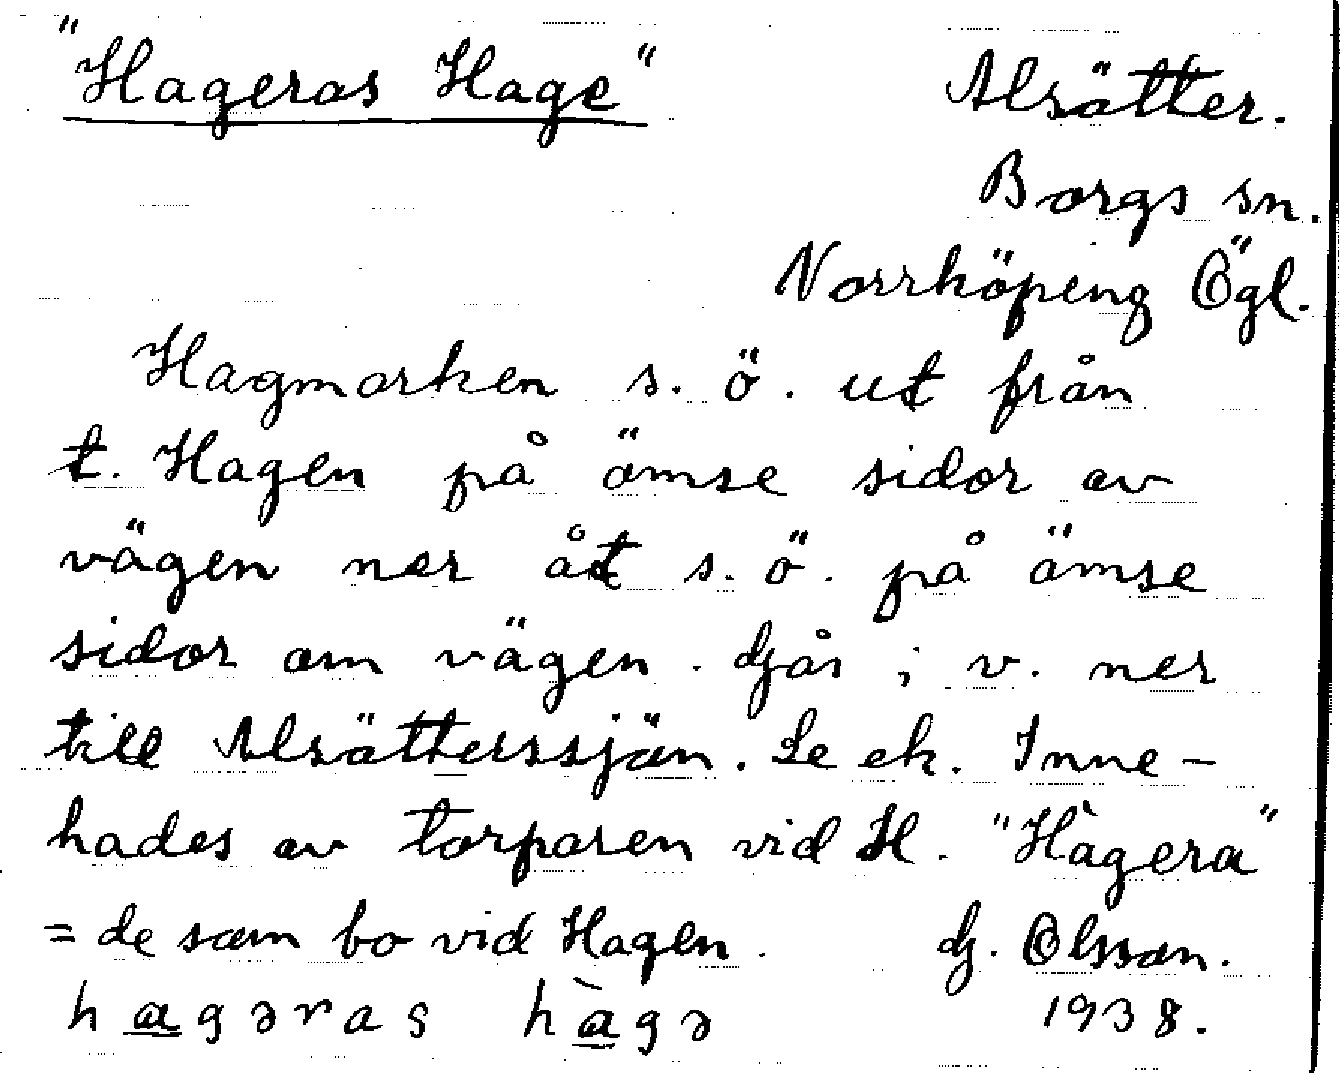 "Hageras Hage"
Alsätter.
Borgs sn.
Norrköping Ögl.
Hagmarken s. ö. ut från
t. Hagen på ömse sidor av
vägen ner åt s. ö. på ömse
sidor om vägen. Går i v. ner
till Alsätterssjön. Se ek. Inne-
hades av torparen vid H. "Hàgera"
= de som bo vid Hagen.
G. Olsson.
hagəras hàgə
1938.